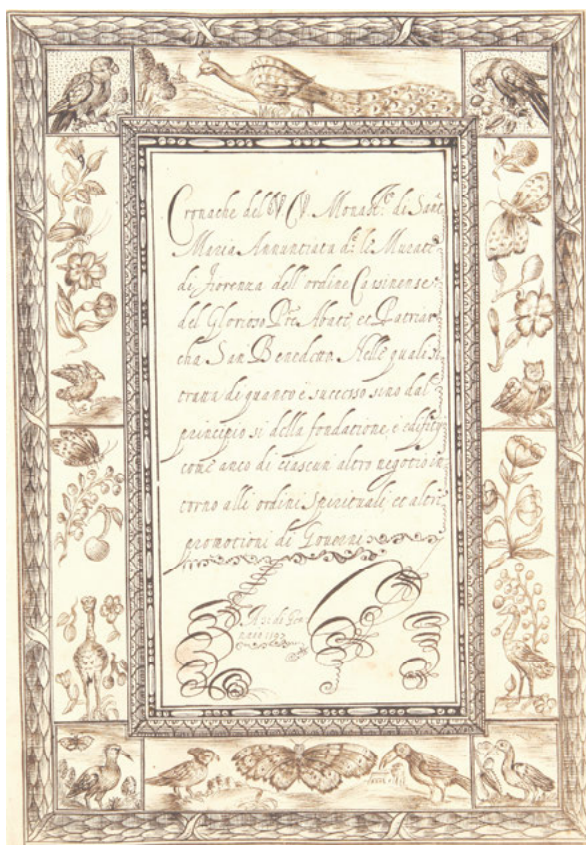 Cronache del V. Monast.º di Santa
Maria Annuntiata d.ª le Murate
di Fiorenza dell'ordine Cassinense
del Glorioso P̃re Abate, et Patriar
cha San Benedetto. Nelle quali si
tratta di quanto è successo sino dal
principio si della fondatione, e edifitij
come anco di ciascun altro negotio in
torno alli ordini Spirituali, et altre
promotioni di Governi
A di Gen
naio 1597